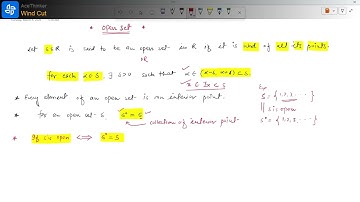 AddThinker
Wind Cut
* open set *
Set S⊆R is said to be an open set in R if it is nbd of all its points.
OR
for each x∈S, ∃ δ>0 such that x ∈ (x-δ, x+δ) ⊂ S
x ∈ Ix ⊂ S
* Every element of an open set is an interior point.
* for an open set S, S° = S
collection of interior point.
* If S is open ⟺ S° = S
S = {1,2,3, ....}
S is open
S° = {1,2,3, ....}